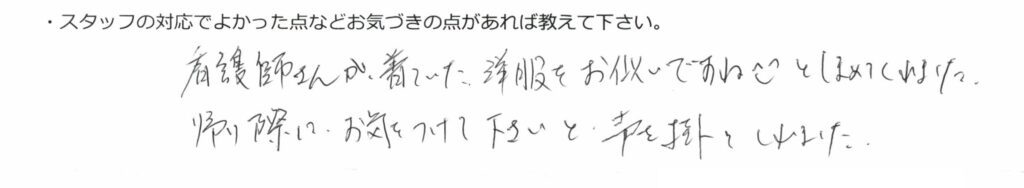 ・スタッフの対応でよかった点などお気づきの点があれば教えて下さい。
看護師さんが、着ていた洋服をお似いですね☺とほめてくれました。
帰り際に、お気をつけて下さいと、声を掛てくれました。